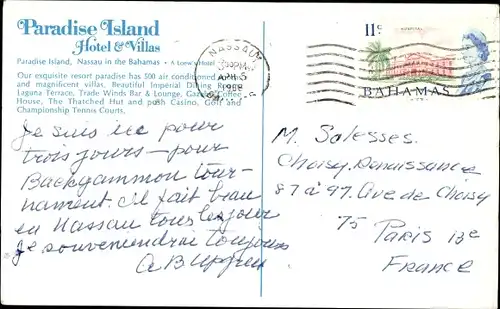 Paradise Island
Hotel & Villas
Paradise Island, Nassau in the Bahamas • A Loew's Hotel
Our exquisite resort paradise has 500 air conditioned
and magnificent villas, Beautiful Imperial Dining
Laguna Terrace, Trade Winds Bar & Lounge, Coffee
House, The Thatched Hut and posh Casino, Golf and
Championship Tennis Courts.
NASSAU
PM
APR 5
11c
BAHAMAS
Je suis ici pour
trois jours - pour
Backgammon tour-
nament. Il fait beau
en Nassau tous les jour
Je souviendrai toujours
M. Salesses.
Choisy-Renaissance
87 à 97. Ave de Choisy
75
Paris 13e
France